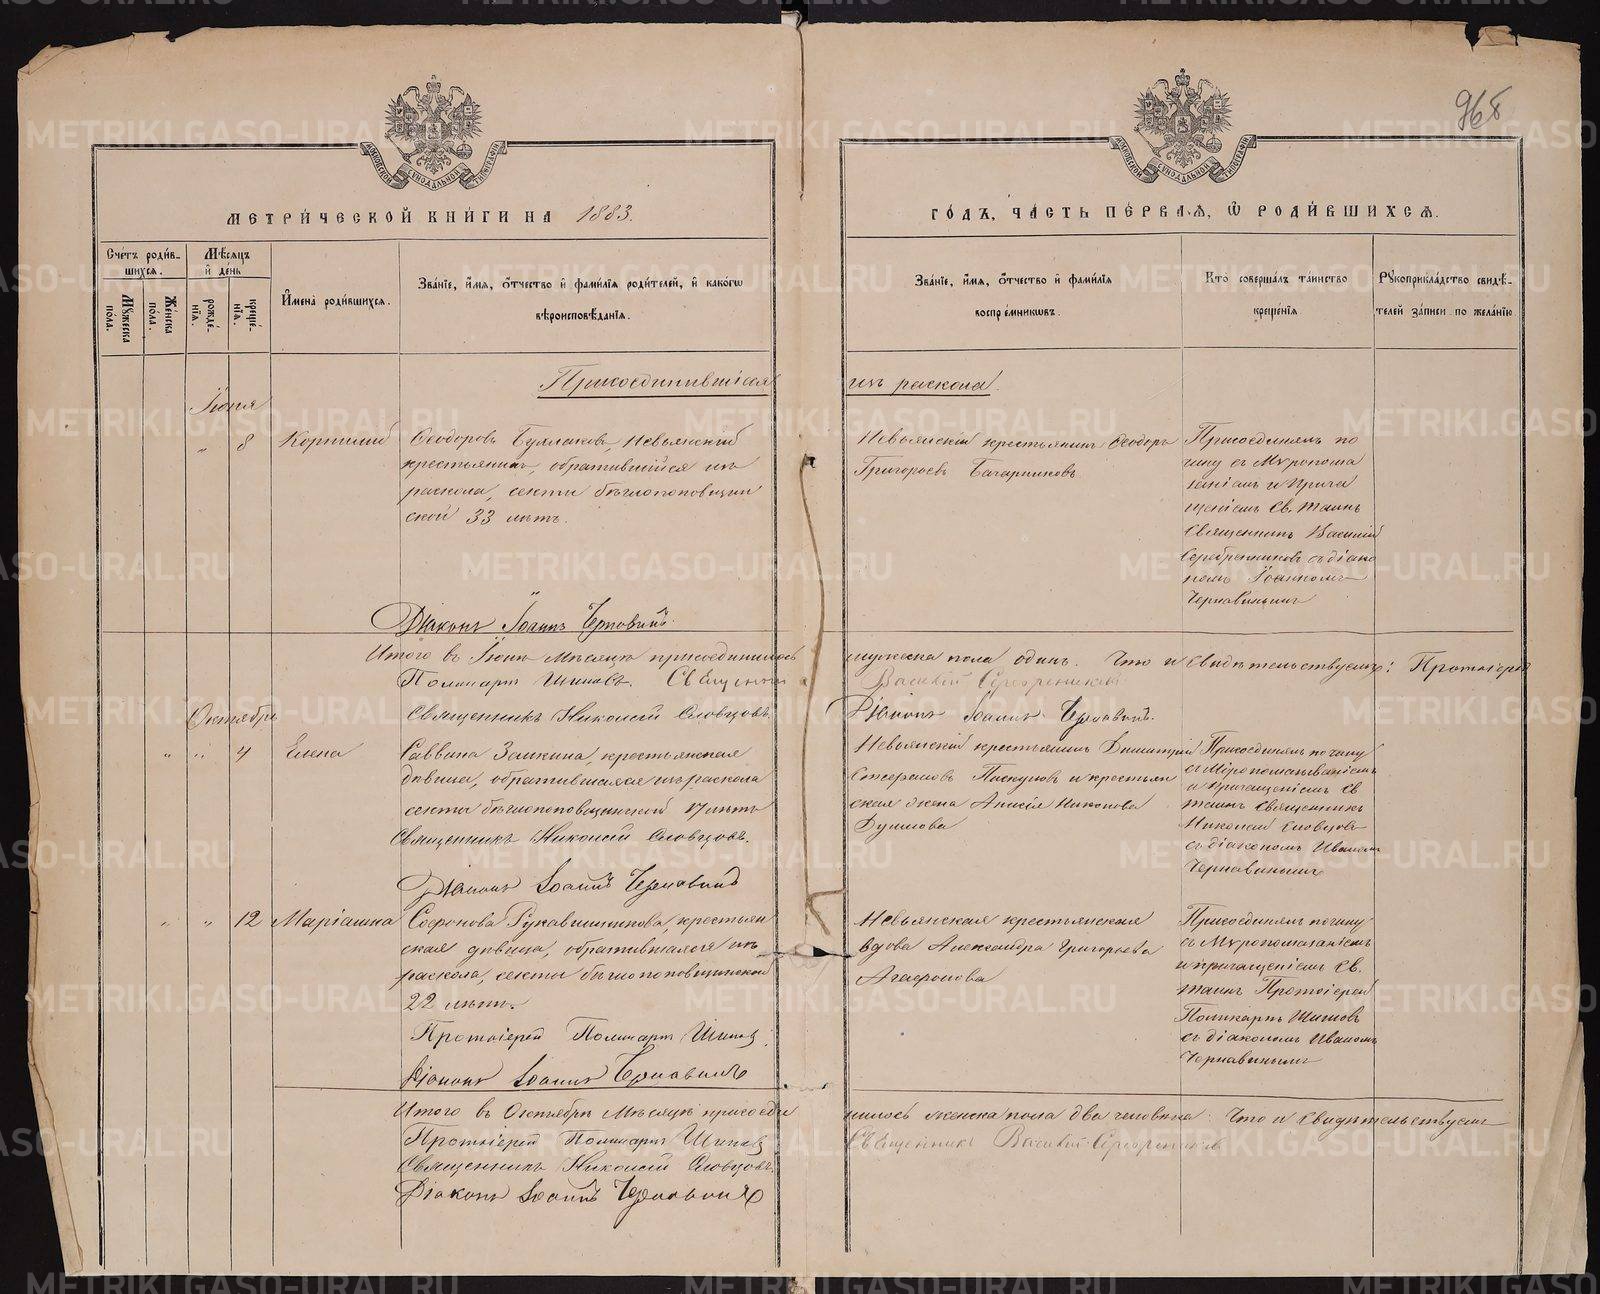 968
МЕТРИ́ЧЕСКОЙ КНИ́ГИ НА 1883.
ГО́ДЪ, ЧА́СТЬ ПЕ́РВАЯ, Ѿ РОДИ́ВШИХСЯ.
Сче́тъ роди́в-
шихся.
Мѣ́сяцъ
и де́нь
Мꙋ́жеска по́ла.
Же́нска по́ла.
рожде́-
нїя.
креще́-
нїя.
Имена̀ роди́вшихся.
Зва́нїе, и́мя, ѻ҆́тчество и фами́лїя роди́телей, и како́гѡ
вѣроисповѣ́данїя.
Зва́нїе, и́мя, ѻ҆́тчество и фами́лїя
воспрїе́мникѡвъ.
Кто̀ соверша́лъ та́инство
креще́нїя
Рꙋкоприкла́дство свидѣ́-
телей за́писи по жела́нїю.
Присоединившіеся
изъ раскола.
Іюня
" 8 Корнилій
Ѳеодоровъ Невьянскій
крестьянинъ, обратившійся изъ
раскола, секты бѣглопоповщин
ской 33 лѣтъ.
Невьянскій крестьянинъ Ѳеодоръ
Григорьевъ
Присоединялъ по
чину съ Мѵропома
заніемъ и Прича
щеніемъ Св. Таинъ
Священникъ Василій
Серебренниковъ съ діако
номъ Іоанномъ
Чернавинымъ
Діаконъ Іоаннъ Чернавинъ.
Итого въ Іюнѣ Мѣсяцѣ присоединилось
мужеска пола одинъ. Что и свидѣтельствуемъ: Протоіерей
Поликарпъ Шишовъ. Священникъ
Василій Серебренниковъ
Священникъ Николай Словцовъ.
Діаконъ Іоаннъ Чернавинъ.
Октября
" " 4 Елена
Саввина Заикина, крестьянская
дѣвица, обратившаяся изъ раскола
секты бѣглопоповщинской 17 лѣтъ
Священникъ Николай Словцовъ.
Діаконъ Іоаннъ Чернавинъ
Невьянскій крестьянинъ Димитрій
Пискуновъ и крестьян
ская жена Анисія Никонова
Присоединялъ по чину
съ Мѵропомазываніемъ
и Причащеніемъ Св
таинъ Священникъ
Николай Словцовъ
съ діакономъ Иваномъ
Чернавинымъ
" " 12 Маріанна
Софронова Рукавишникова, крестьян
ская дѣвица, обратившаяся изъ
раскола, секты бѣглопоповщинской
22 лѣтъ.
Протоіерей Поликарпъ Шишовъ.
Діаконъ Іоаннъ Чернавинъ
Невьянская крестьянская
вдова Александра Григорьева
Агафонова
Присоединялъ по чину
съ Мѵропомазаніемъ
и причащеніемъ Св.
таинъ Протоіерей
Поликарпъ Шишовъ
съ діакономъ Иваномъ
Чернавинымъ
Итого въ Октябрѣ Мѣсяцѣ присоеди
нилось женска пола два человѣка. Что и свидѣтельствуемъ
Протоіерей Поликарпъ Шишовъ
Священникъ Василій Серебренниковъ
Священникъ Николай Словцовъ.
Діаконъ Іоаннъ Чернавинъ
METRIKI.GASO-URAL.RU